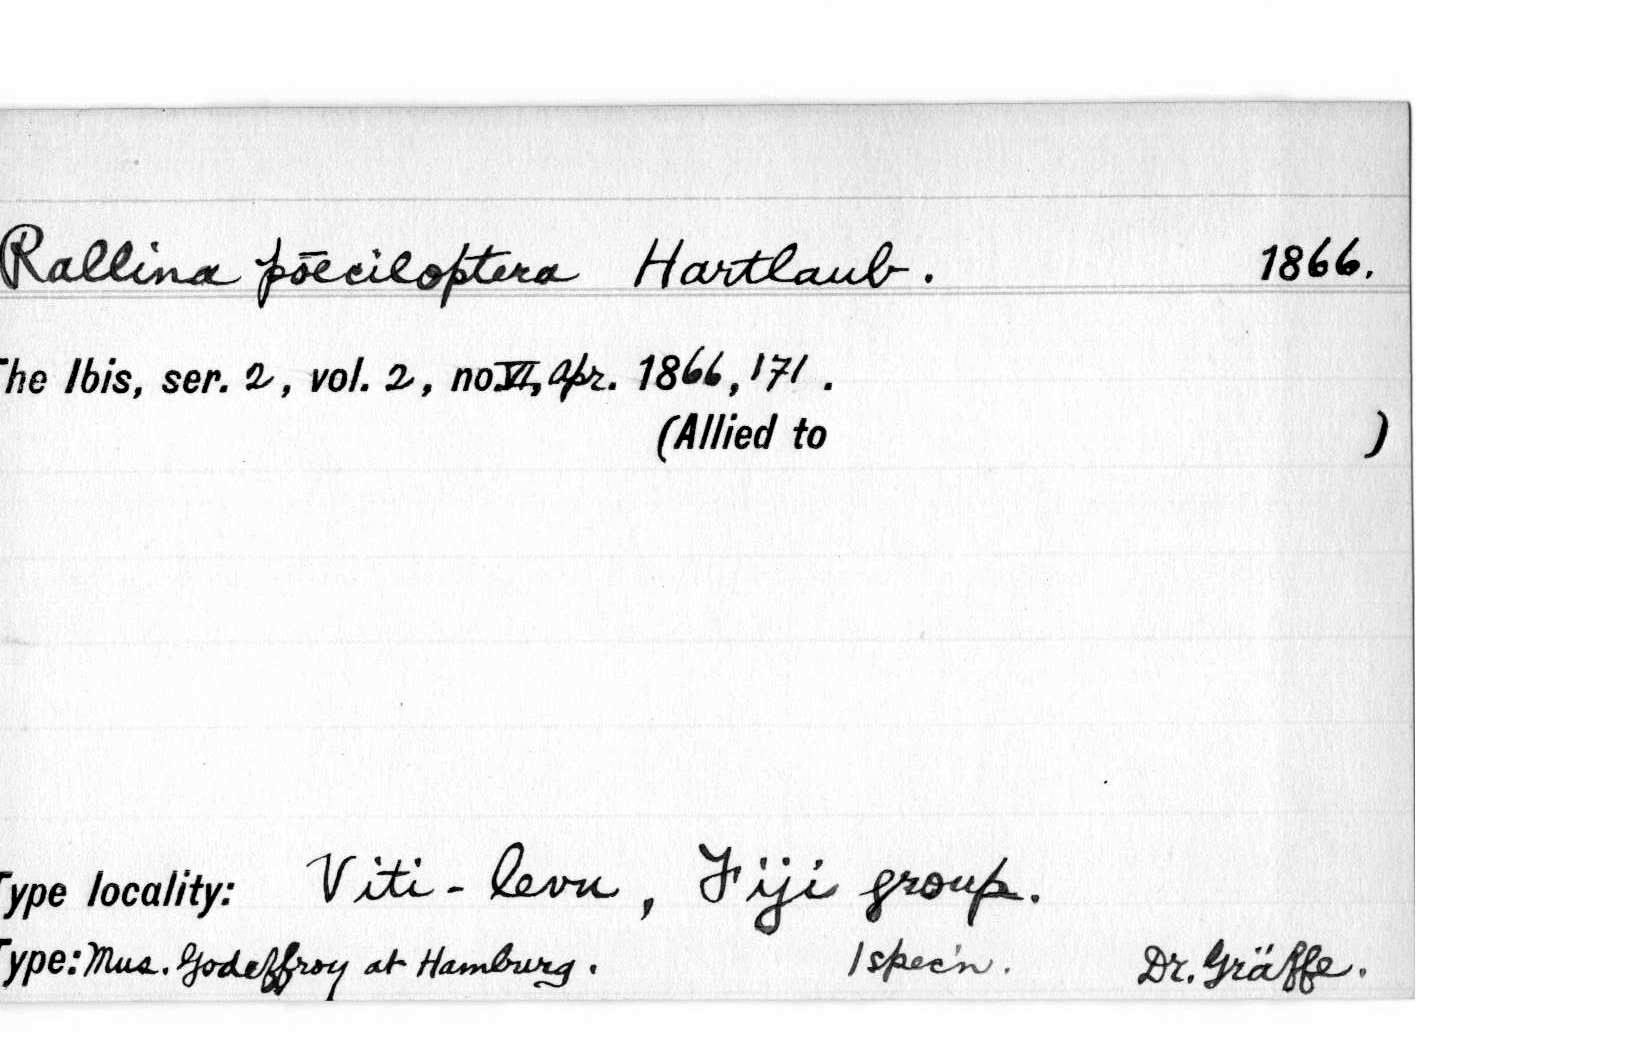 Rallina pōeciloptera Hartlaub. 1866.
The Ibis, ser. 2, vol. 2, no. VI, Apr. 1866, 171.
(Allied to )
Type locality: Viti-levu, Fiji group.
Type: Mus. Godeffroy at Hamburg. 1 spec'n. Dr. Gräffe.